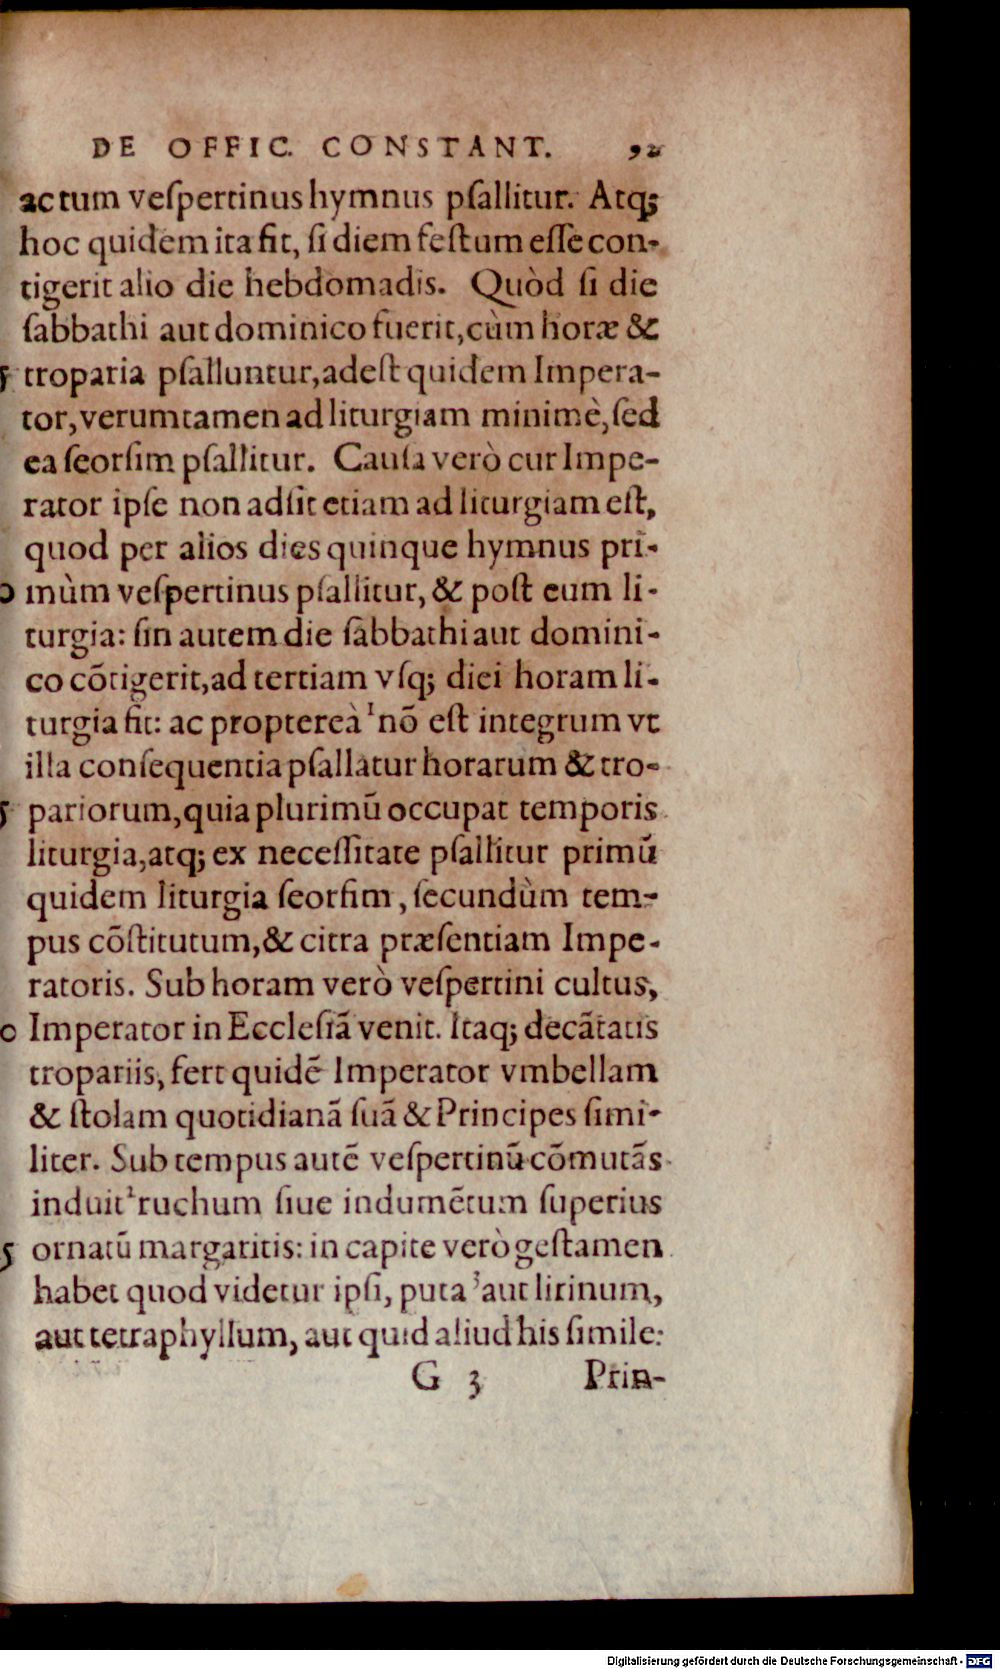 DE OFFIC. CONSTANT.
ac tum veſpertinus hymnus pſallitur. Atq;
hoc quidem ita fit, ſi diem feſtum eſſe con-
tigerit alio die hebdomadis. Quòd ſi die
ſabbathi aut dominico fuerit, cùm horæ &
5 troparia pſalluntur, adeſt quidem Impera-
tor, verumtamen ad liturgiam minimè, ſed
ea ſeorſim pſallitur. Cauſa verò cur Impe-
rator ipſe non adſit etiam ad liturgiam eſt,
quod per alios dies quinque hymnus pri-
0 mùm veſpertinus pſallitur, & poſt eum li-
turgia: ſin autem die ſabbathi aut domini-
co cõtigerit, ad tertiam vſq; diei horam li-
turgia fit: ac proptereà ¹nõ eſt integrum vt
illa conſequentia pſallatur horarum & tro-
5 pariorum, quia plurimũ occupat temporis
liturgia, atq; ex neceſſitate pſallitur primũ
quidem liturgia ſeorſim, ſecundùm tem-
pus cõſtitutum, & citra præſentiam Impe-
ratoris. Sub horam verò veſpertini cultus,
0 Imperator in Eccleſiã venit. Itaq; decãtatis
tropariis, fert quidẽ Imperator vmbellam
& ſtolam quotidianã ſuã & Principes ſimi-
liter. Sub tempus autẽ veſpertinũ cõmutãs
induit ²ruchum ſiue indumẽtum ſuperius
5 ornatũ margaritis: in capite verò geſtamen
habet quod videtur ipſi, puta ³aut litinum,
aut tetraphyllum, aut quid aliud his ſimile:
G 3 Prin-
Digitalisierung gefördert durch die Deutsche Forschungsgemeinschaft - DFG